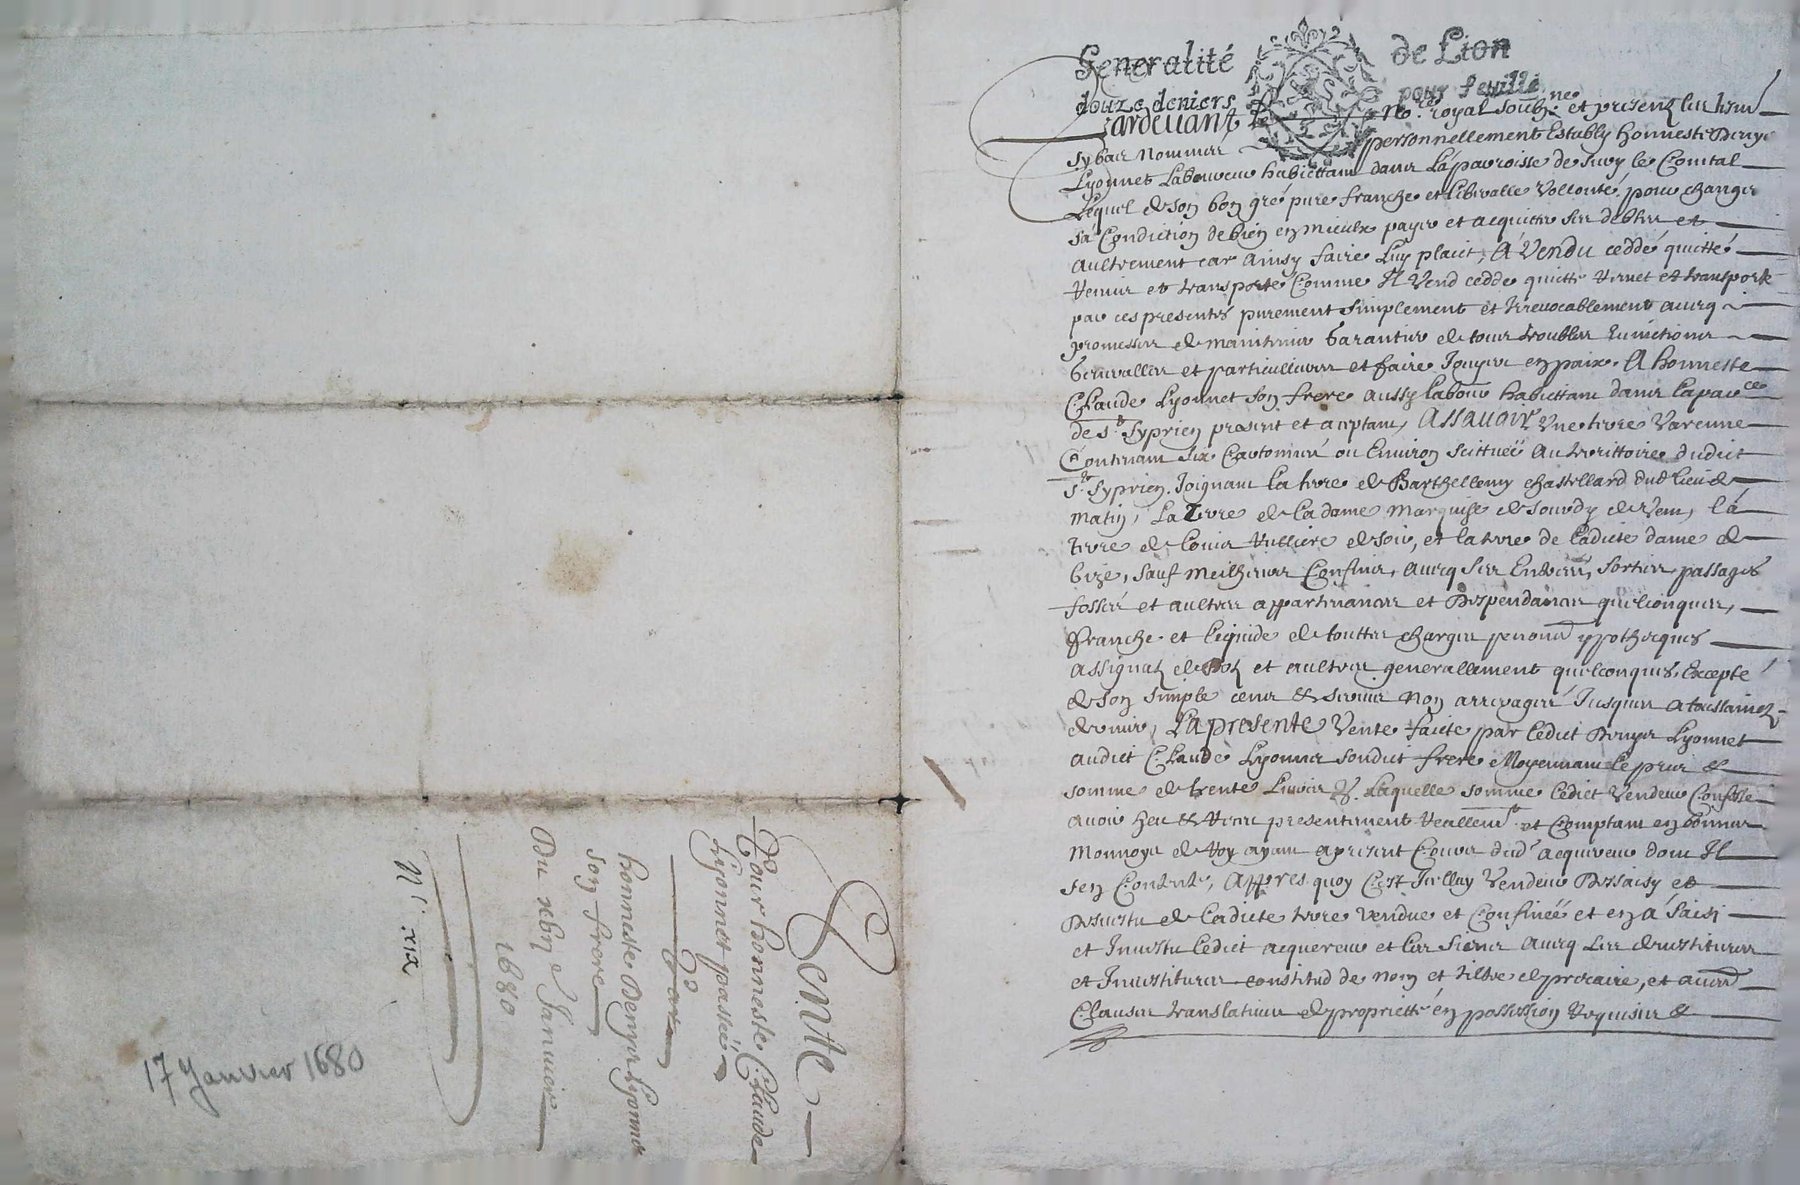 Generalité de Lion
douze deniers pour feuille
Pardevant le No.re royal soubz.ne et presenz les tesm
sybas nommes personnellement estably honneste Denys
Lyonnet laboureur habiettant dans la parroisse de Sury le Comtal
Lequel de son bon gré pure franche et liberalle vollonté, pour changer
sa Condiction de bien en mieulx payer et acquitter ses debtes et
aultrement car ainsy faire luy plaict, A Vendu ceddé quitté
remis et transporté Comme Il Vend cedde quitte remet et transporte
par ces presentes purement simplement et Irrevocablement avecq
promesses de maintenir Garantir de tous troubles Euictions
Generalles et particullieres et faire Jouyr en paix. A honneste
Claude Lyonnet son frere aussy labour habiettant dans la par.ce
de s.t Syprien present et aceptant, Assauoir Vne terre Varenne
Contenant six Cartonnées ou Enuiron scittuée au territtoire dudict
s.t Syprien. Joignant la terre de Barthellemy chastellard dud lieu de
matin, La Terre de la dame Marquise de Sourdy de Vent, la
terre de Louis Thulliere de soir, et la terre de ladicte dame de
bize, sauf meilheurs Confins, auecq ses Entrées, sorties, passages
fosses et aultres appartenances et Despendances quelconques,
franche et liquide de touttes charges pencions ypothecques
assignaz delaiz et aultres generallement quelconques, Excepté
de son simple cens & seruis non arreragés Jusques a toussainctz
dernier, La presente Vente faicte par ledict Denys Lyonnet
audict Claude Lyonnet sondict frere Moyennant le prix &
somme de trente Liures tz. Laquelle somme ledict Vendeur Confesse
auoir heu & receu presentement reallem.t et Comptant en bonnes
Monnoyes de Roy ayant a present Cours dud acquereur dont Il
sen Contente, Appres quoy Cest Icelluy Vendeur Dessaisy et
Deuestu de ladicte terre vendue et Confinéé et en a saisi
et Inuestu ledict acquereur et les siens auecq les deuestitures
et Inuestitures constitud de nom et tiltre de precaire, et aultres
Clauses translatiues de proprietté en possession requises &
Vente
Pour honneste Claude
Lyonnet passéé
Par
honneste Denys Lyonnet
son frere
Du xbij.e Januier
1680
N.o xix
17 Janvier 1680